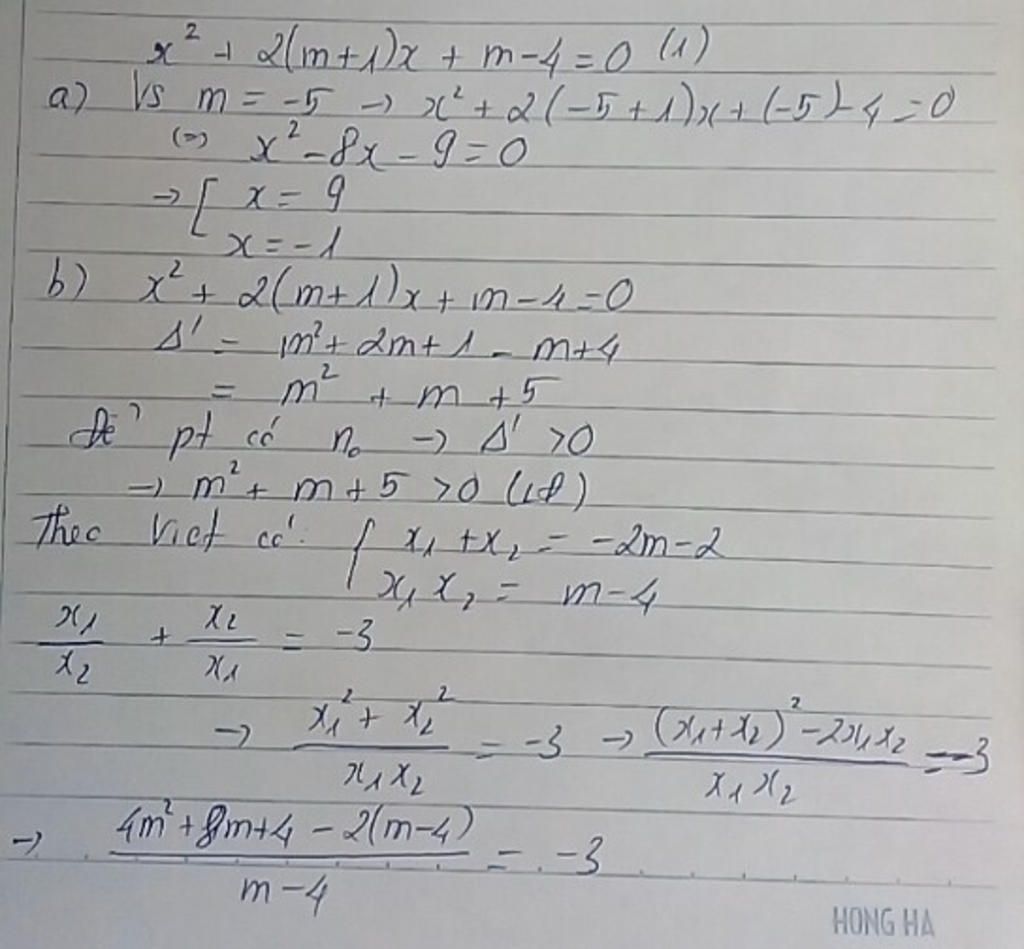 x² + 2(m+1)x + m-4=0 (1)
a) Vs m = -5 → x² + 2(-5+1)x+(-5)-4=0
(=) x²-8x-9=0
→[ x = 9
x=-1
b) x²+ 2(m+1)x + m-4=0
Δ' = m²+2m+1 - m+4
= m² + m +5
Để pt có n₀ → Δ' >0
→ m²+ m+5 >0 (lđ)
Theo Viet có: { x₁ +x₂ = -2m-2
x₁ x₂ = m-4
x₁/x₂ + x₂/x₁ = -3
→ (x₁²+ x₂²)/(x₁x₂) = -3 → ((x₁+x₂)²-2x₁x₂)/(x₁x₂) = -3
→ (4m²+8m+4 - 2(m-4))/(m-4) = -3
HONG HA